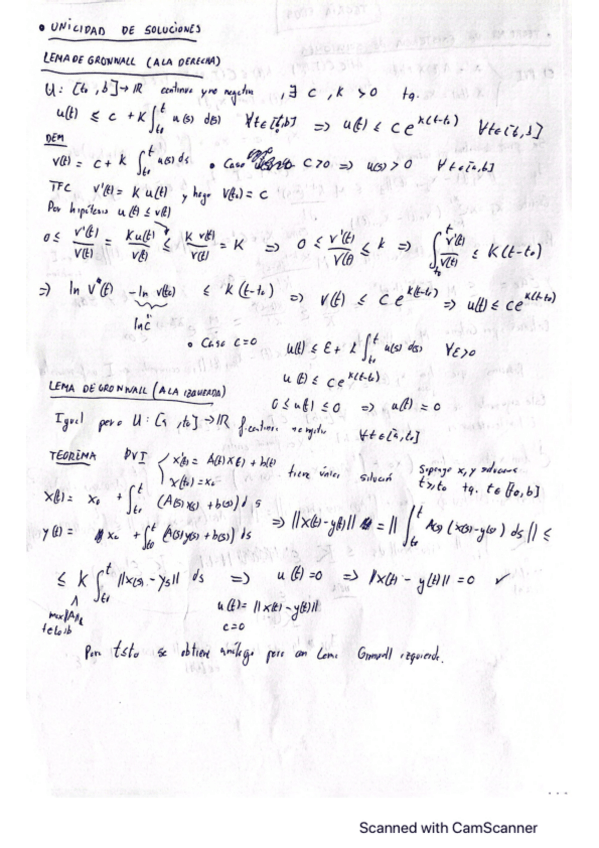 • UNICIDAD DE SOLUCIONES
LEMA DE GRONWALL (A LA DERECHA)
U: [t₀, b] → ℝ continua y no negativa, ∃ C, K > 0 tq.
u(t) ≤ C + K ∫_{t₀}^{t} u(s) d(s) ∀t∈[t₀,b] ⇒ u(t) ≤ C e^{K(t-t₀)} ∀t∈[t₀,b]
DEM
V(t) = C + K ∫_{t₀}^{t} u(s) ds • Caso C>0 ⇒ u(s) > 0 ∀t∈[a,b]
TFC V'(t) = K u(t) y hago V(t₀) = C
Por hipótesis u(t) ≤ v(t)
0 ≤ V'(t)/V(t) = Ku(t)/V(t) ≤ K v(t)/V(t) = K ⇒ 0 ≤ V'(t)/V(t) ≤ K ⇒ ∫_{t₀}^{t} V'(t)/V(t) ≤ K(t-t₀)
⇒ ln V(t) - ln V(t₀) ≤ K(t-t₀) ⇒ V(t) ≤ C e^{K(t-t₀)} ⇒ u(t) ≤ C e^{K(t-t₀)}
ln C
• Caso C=0 u(t) ≤ ε + K ∫_{t₀}^{t} u(s) ds ∀ε>0
u(t) ≤ C e^{K(t-t₀)}
LEMA DE GRONWALL (A LA IZQUIERDA)
0 ≤ u(t) ≤ 0 ⇒ u(t) = 0
Igual pero U: [a, t₀] → ℝ f. continua no negativa ∀t∈[a,t₀]
TEOREMA PVI { x'(t) = A(t)X(t) + b(t)
x(t₀) = x₀ tiene única solución
Supongo x, y soluciones
t≥t₀ tq. t∈[t₀,b]
x(t) = x₀ + ∫_{t₀}^{t} (A(s)x(s) + b(s)) ds
y(t) = x₀ + ∫_{t₀}^{t} (A(s)y(s) + b(s)) ds ⇒ ||x(t)-y(t)|| = || ∫_{t₀}^{t} A(s) (x(s)-y(s)) ds || ≤
≤ K ∫_{t₀}^{t} ||x(s) - y(s)|| ds ⇒ u(t) = 0 ⇒ ||x(t) - y(t)|| = 0 ✓
u(t) = ||x(t)-y(t)||
C=0
Para t≤t₀ se obtiene análogo pero con Lema Gronwall izquierda.
Scanned with CamScanner